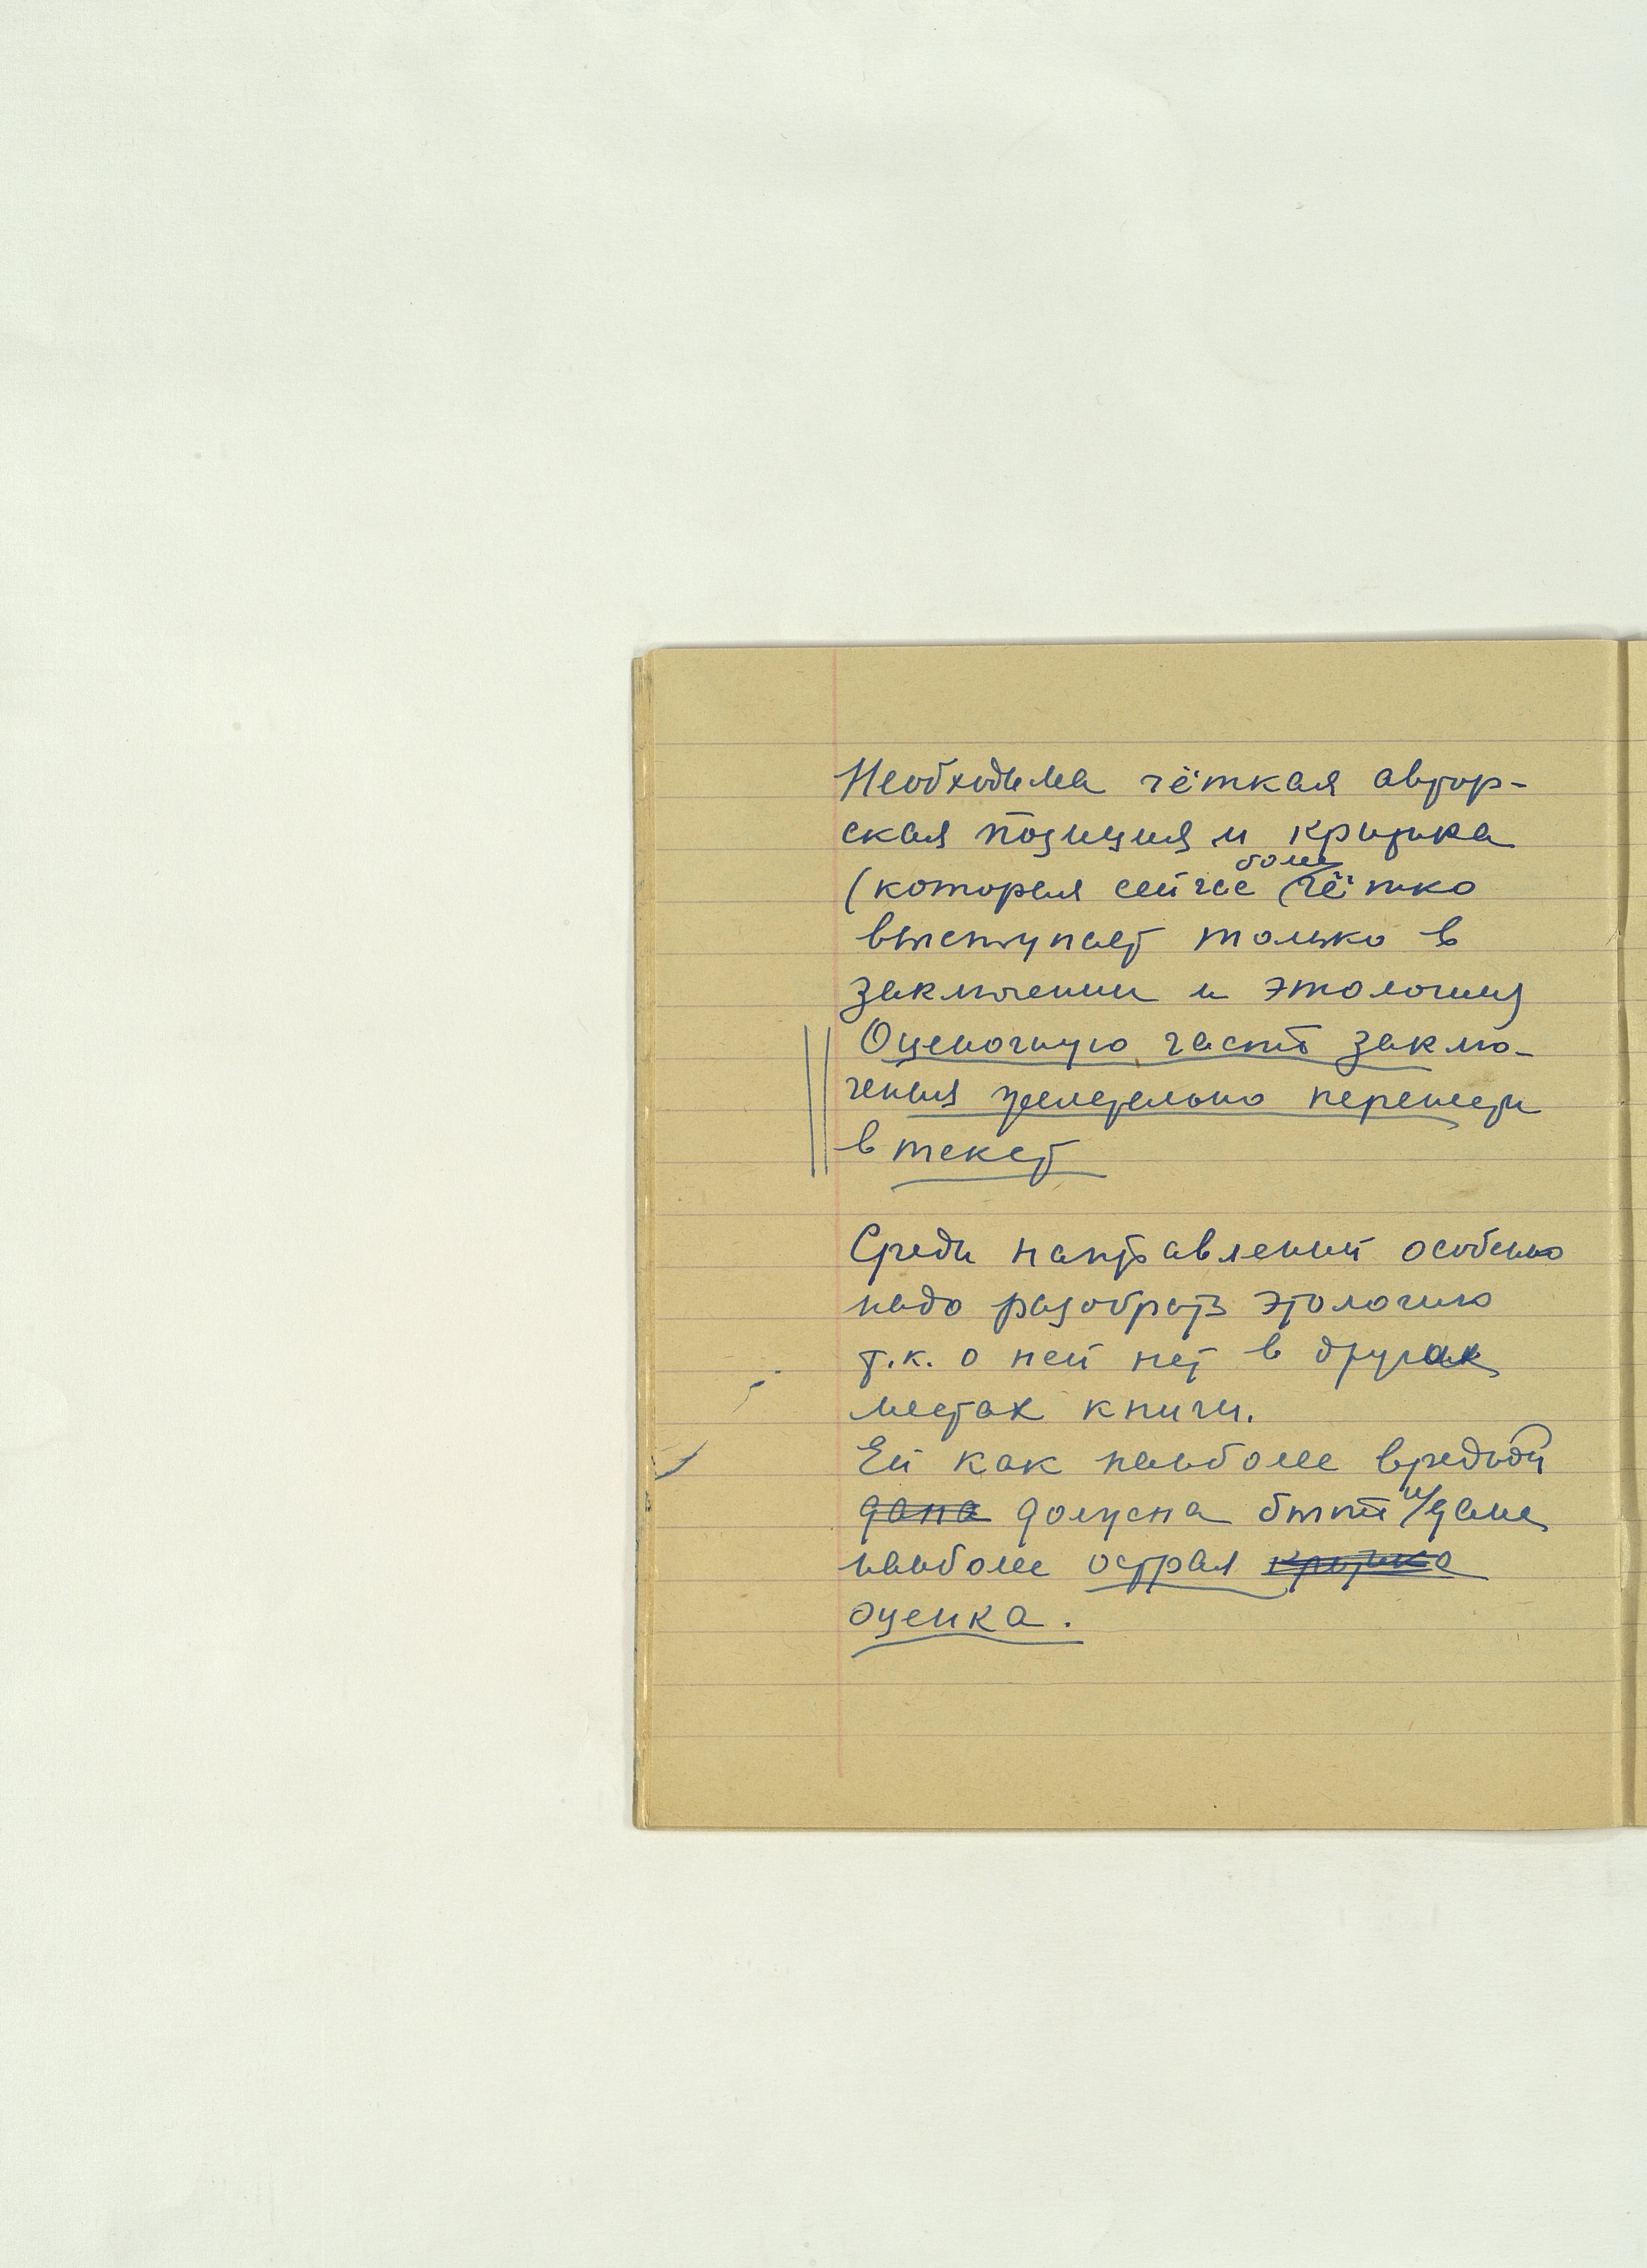 Необходима чёткая автор-
ская позиция и критика
(которая сейчас более чётко
выступает только в
заключении и этология
Оценочную часть заклю-
чения желательно перенести
в текст
Среди направлений особенно
надо разобрать этологию
т.к. о ней нет в других
местах книги.
Ей как наиболее вредной
дана должна быть и дана
наиболее острая критика
оценка.